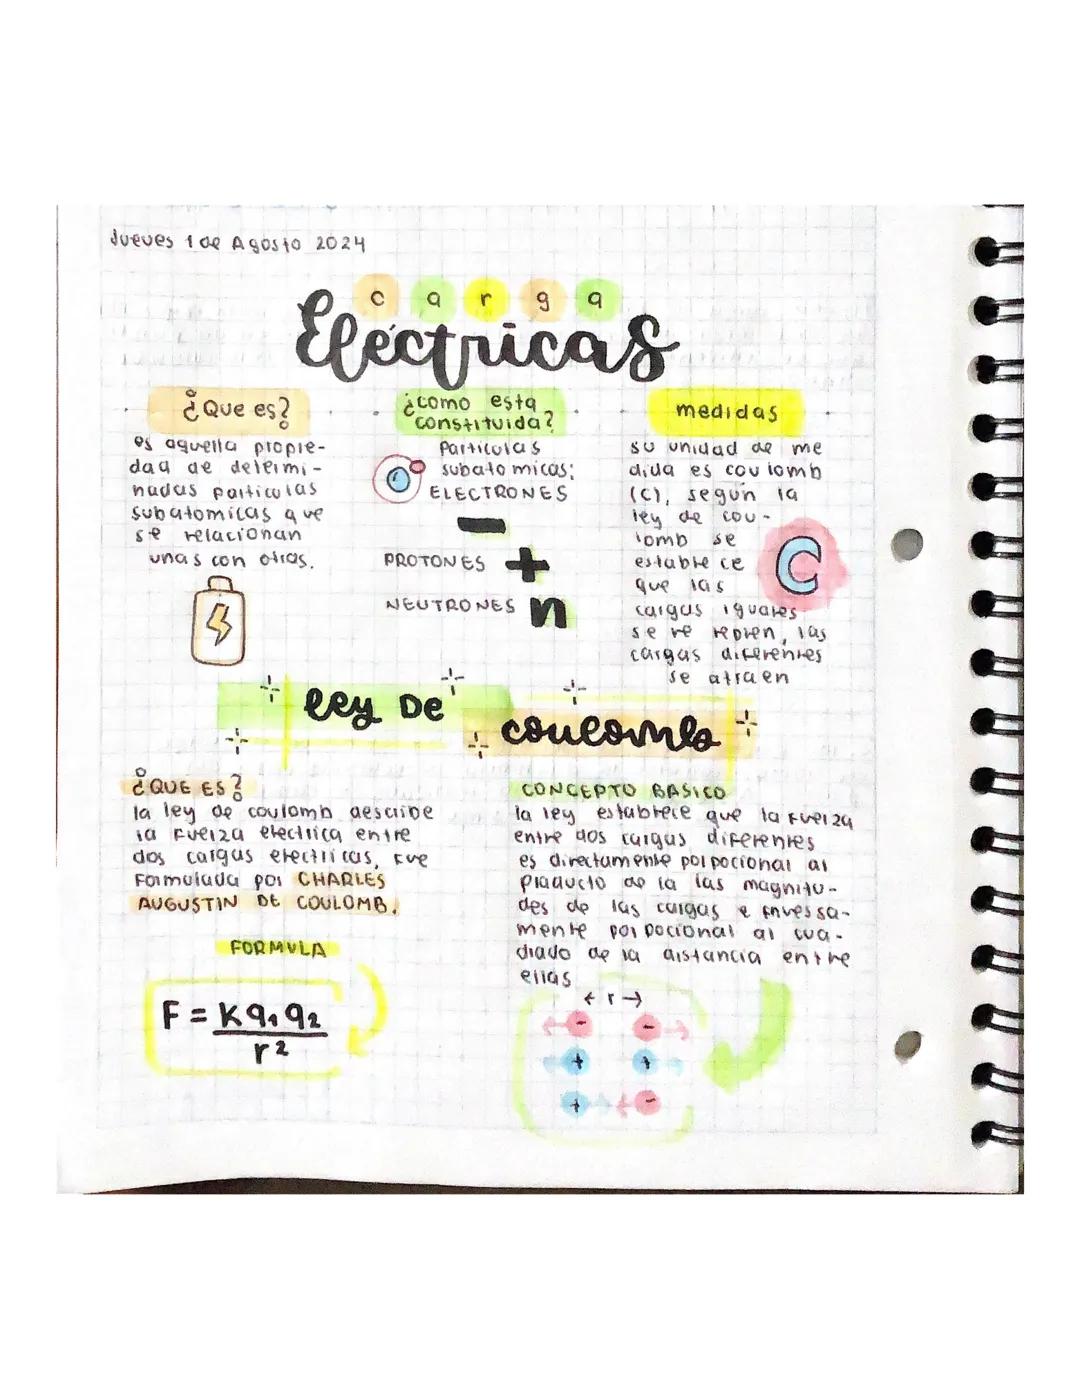 Jueves 1 de Agosto 2024
carga
Eléctricas
¿Que es?
es aquella propie-
dad de determi-
nadas particulas
subatomicas que
se relacionan
unas con otras.
¿como esta
constituida?
Particulas
subatomicas:
ELECTRONES
-
PROTONES +
NEUTRONES n
medidas
su unidad de me
dida es coulomb
(c), según la
ley de cou-
lomb se
establece
que las
cargas iguales
se re repelen, las
cargas diferentes
se atraen
C
ley De
coulomb
¿QUE ES?
la ley de coulomb describe
la fuerza electrica entre
dos cargas electricas, fue
Formulada por CHARLES
AUGUSTIN DE COULOMB.
FORMULA
F = K q1 q2
r2
CONCEPTO BASICO
la ley establece que la fuerza
entre dos cargas diferentes
es directamente porpocional al
producto de la las magnitu-
des de las cargas e inversa-
mente porpocional al cua-
drado de la distancia entre
ellas
← r →
- -
+ +
+ -